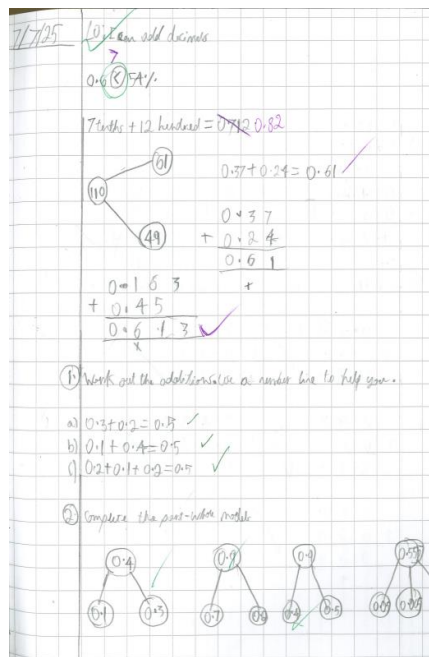 7/7/25 LO: I can add decimals
>
0.6 < 54%
7 tenths + 12 hundred = 0.712 0.82
61
110
49
0.37 + 0.24 = 0.61
0.37
+ 0.24
0.61
0.163
+ 0.45
0.613
1) Work out the additions. Use a number line to help you.
a) 0.3+0.2=0.5
b) 0.1+0.4=0.5
c) 0.2+0.1+0.2=0.5
2) Complete the part-whole models
0.4 0.9 0.9
0.1 0.3 0.7 0.5